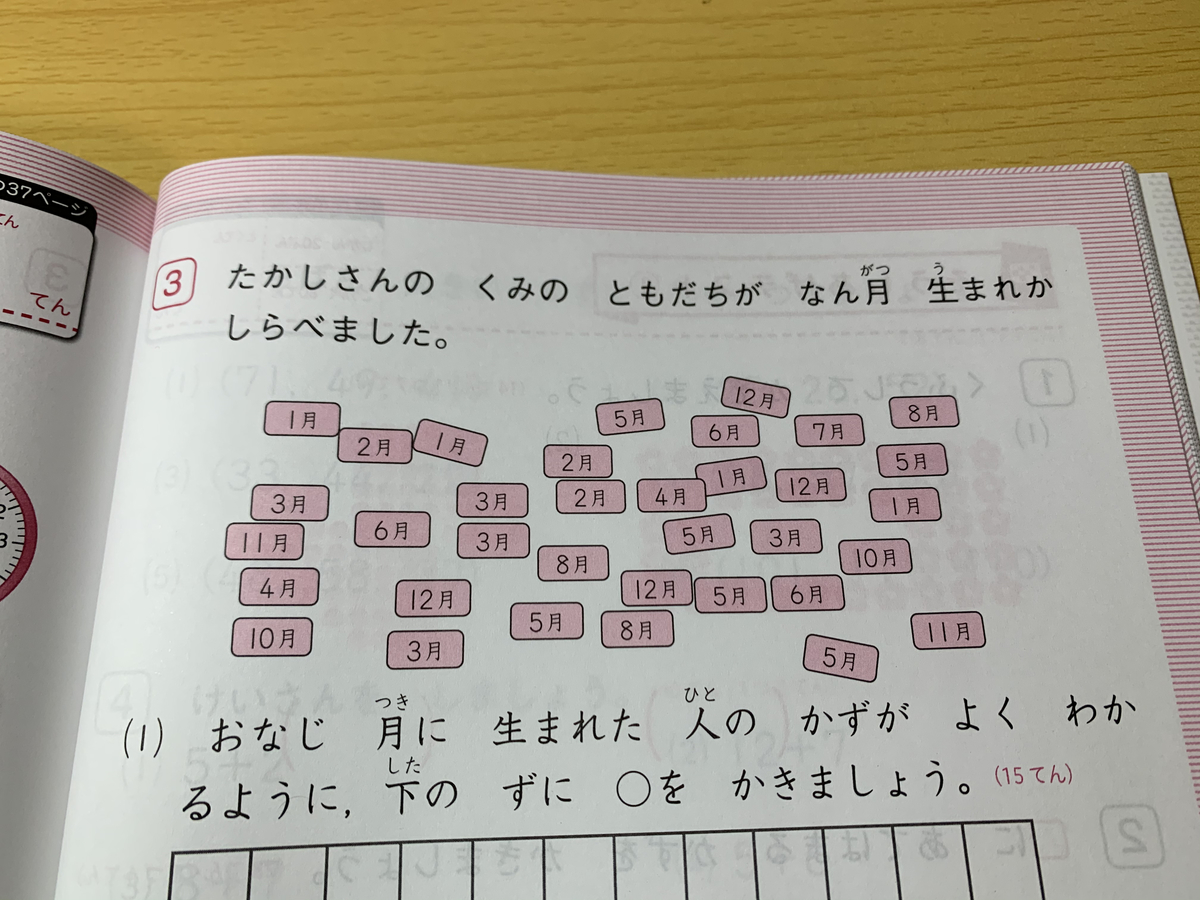 の37ページ
てん
てん
2
3
3
たかしさんの くみの ともだちが なん月 生まれか
がつ う
しらべました。
1月 2月 1月 5月 12月 6月 7月 8月
2月 1月 5月
3月 3月 2月 4月 12月 1月
11月 6月 3月 5月 3月 10月
4月 12月 8月 12月 5月 6月
10月 3月 5月 8月 5月 11月
つき ひと
(1) おなじ 月に 生まれた 人の かずが よく わか
した
るように, 下の ずに ○を かきましょう。(15てん)